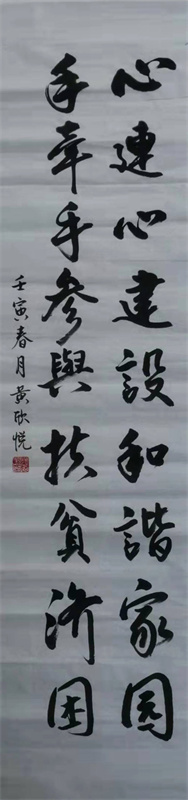 心連心建設和諧家园
手牽手參與扶貧济困
壬寅春月黄欣悦